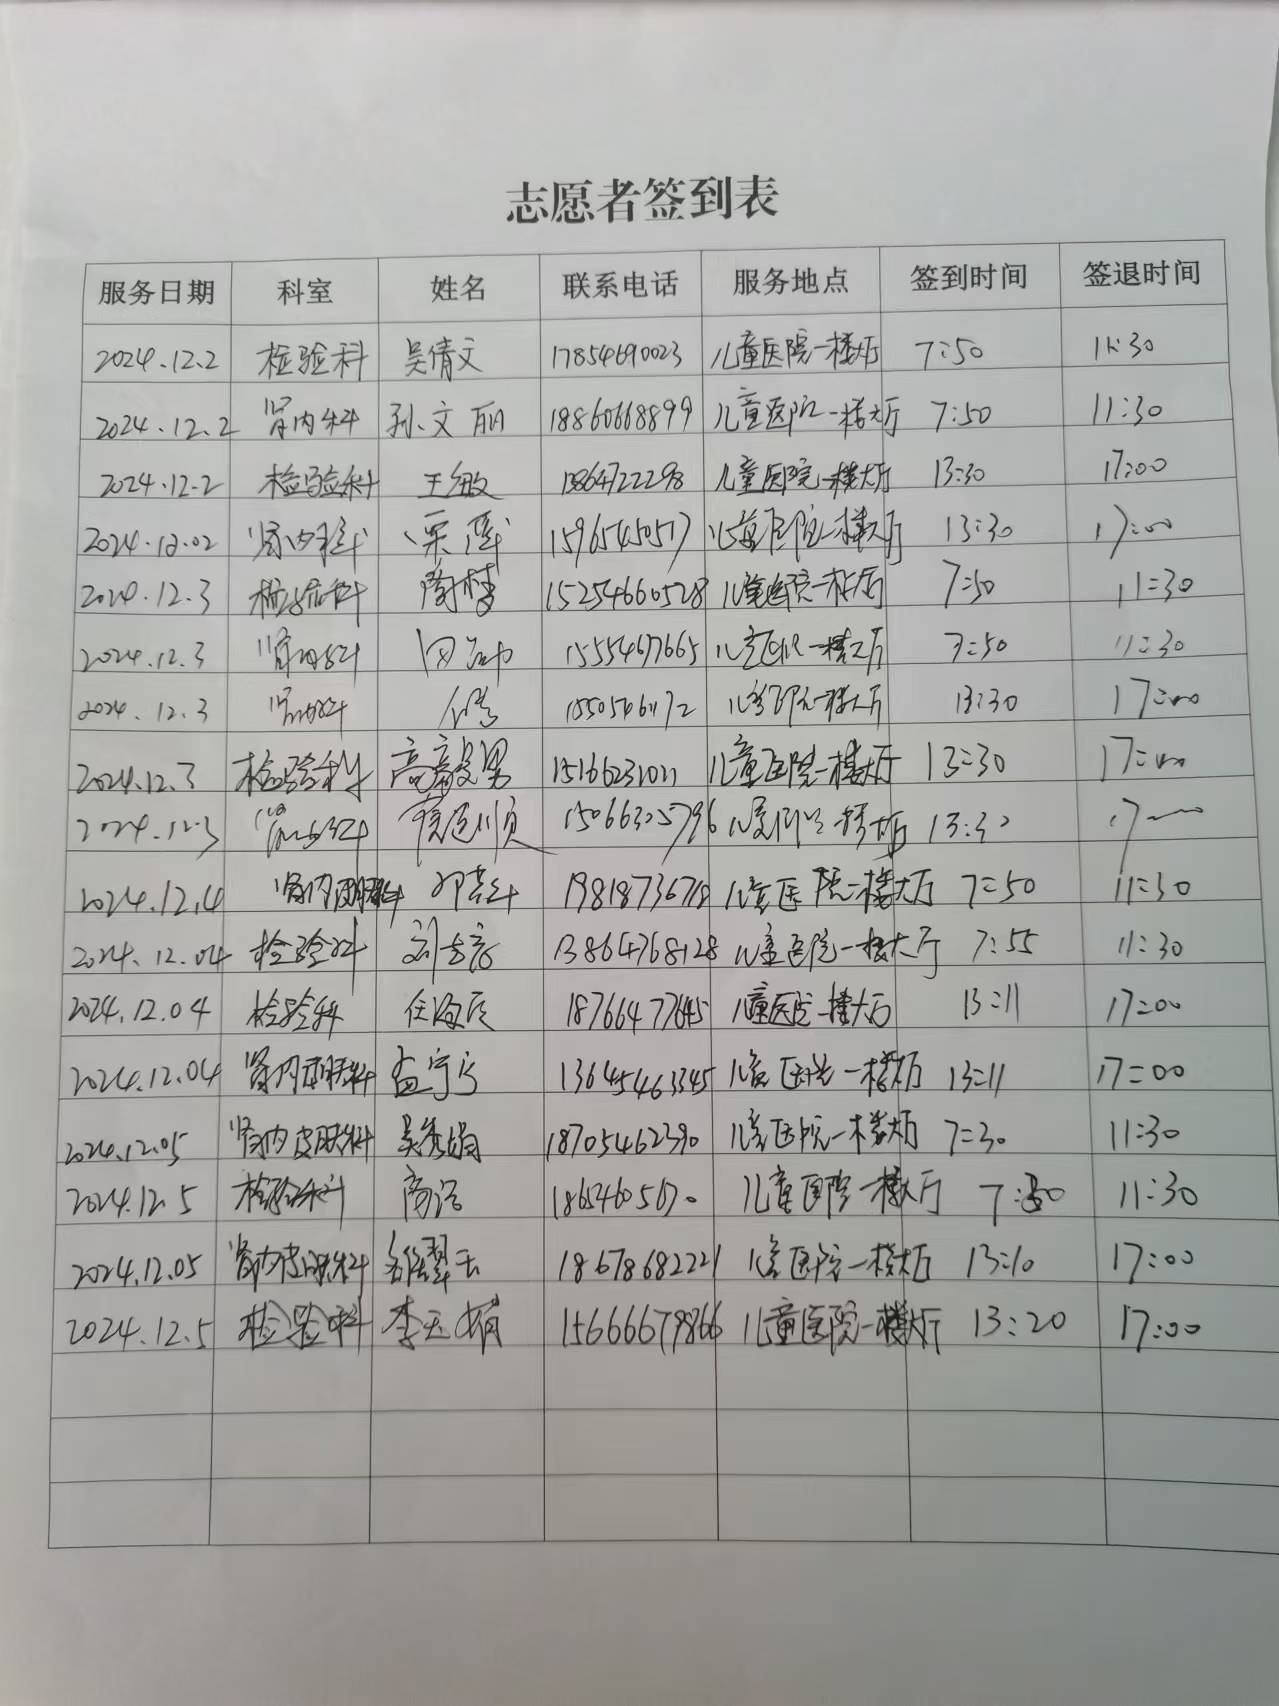 志愿者签到表
服务日期 科室 姓名 联系电话 服务地点 签到时间 签退时间
2024.12.2 检验科 吴倩文 17854690023 儿童医院一楼大厅 7:50 11:30
2024.12.2 肾内科 孙文丽 18860668899 儿童医院一楼大厅 7:50 11:30
2024.12.2 检验科 王敏 儿童医院一楼大厅 13:30 17:00
2024.12.02 肾内科 栗莲 15965450517 儿童医院一楼大厅 13:30 17:00
2024.12.3 检验科 陶梦 15254660528 儿童医院一楼大厅 7:50 11:30
2024.12.3 肾内科 15554677665 儿童医院一楼大厅 7:50 11:30
2024.12.3 肾内科 儿童医院一楼大厅 13:30 17:00
2024.12.3 检验科 高毅男 儿童医院一楼大厅 13:30 17:00
2024.12.3 肾内科 15066305796 儿童医院一楼大厅 13:30 17
2024.12.4 肾内皮肤科 19818736718 儿童医院一楼大厅 7:50 11:30
2024.12.04 检验科 13864768128 儿童医院一楼大厅 7:55 11:30
2024.12.04 检验科 任海辰 18766477645 儿童医院一楼大厅 13:11 17:00
2024.12.04 肾内皮肤科 孟宁宁 13645463345 儿童医院一楼大厅 13:11 17:00
2024.12.05 肾内皮肤科 吴秀娟 18705462390 儿童医院一楼大厅 7:30 11:30
2024.12.5 检验科 商洁 儿童医院一楼大厅 7:30 11:30
2024.12.05 肾内皮肤科 18678682221 儿童医院一楼大厅 13:10 17:00
2024.12.5 检验科 李天娟 15666679866 儿童医院一楼大厅 13:20 17:00